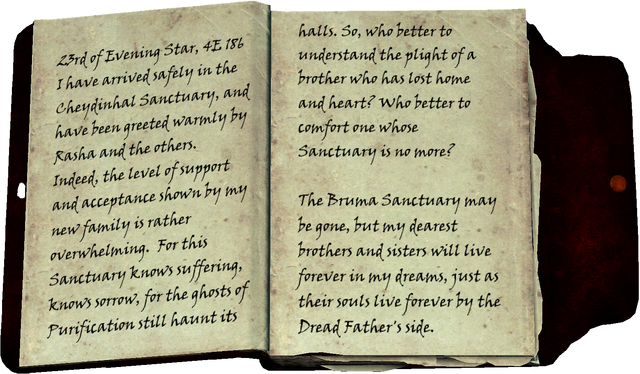 23rd of Evening Star, 4E 186
I have arrived safely in the
Cheydinhal Sanctuary, and
have been greeted warmly by
Rasha and the others.
Indeed, the level of support
and acceptance shown by my
new family is rather
overwhelming. For this
Sanctuary knows suffering,
knows sorrow, for the ghosts of
Purification still haunt its
halls. So, who better to
understand the plight of a
brother who has lost home
and heart? Who better to
comfort one whose
Sanctuary is no more?

The Bruma Sanctuary may
be gone, but my dearest
brothers and sisters will live
forever in my dreams, just as
their souls live forever by the
Dread Father's side.